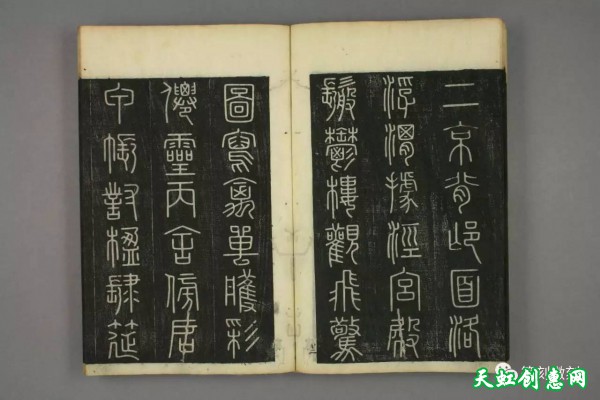 二京背邙面洛
浮渭據涇宮殿
盤鬱樓觀飛驚
圖寫禽獸畫彩
僊靈丙舍傍啟
甲帳對楹肆筵
天虹创惠网